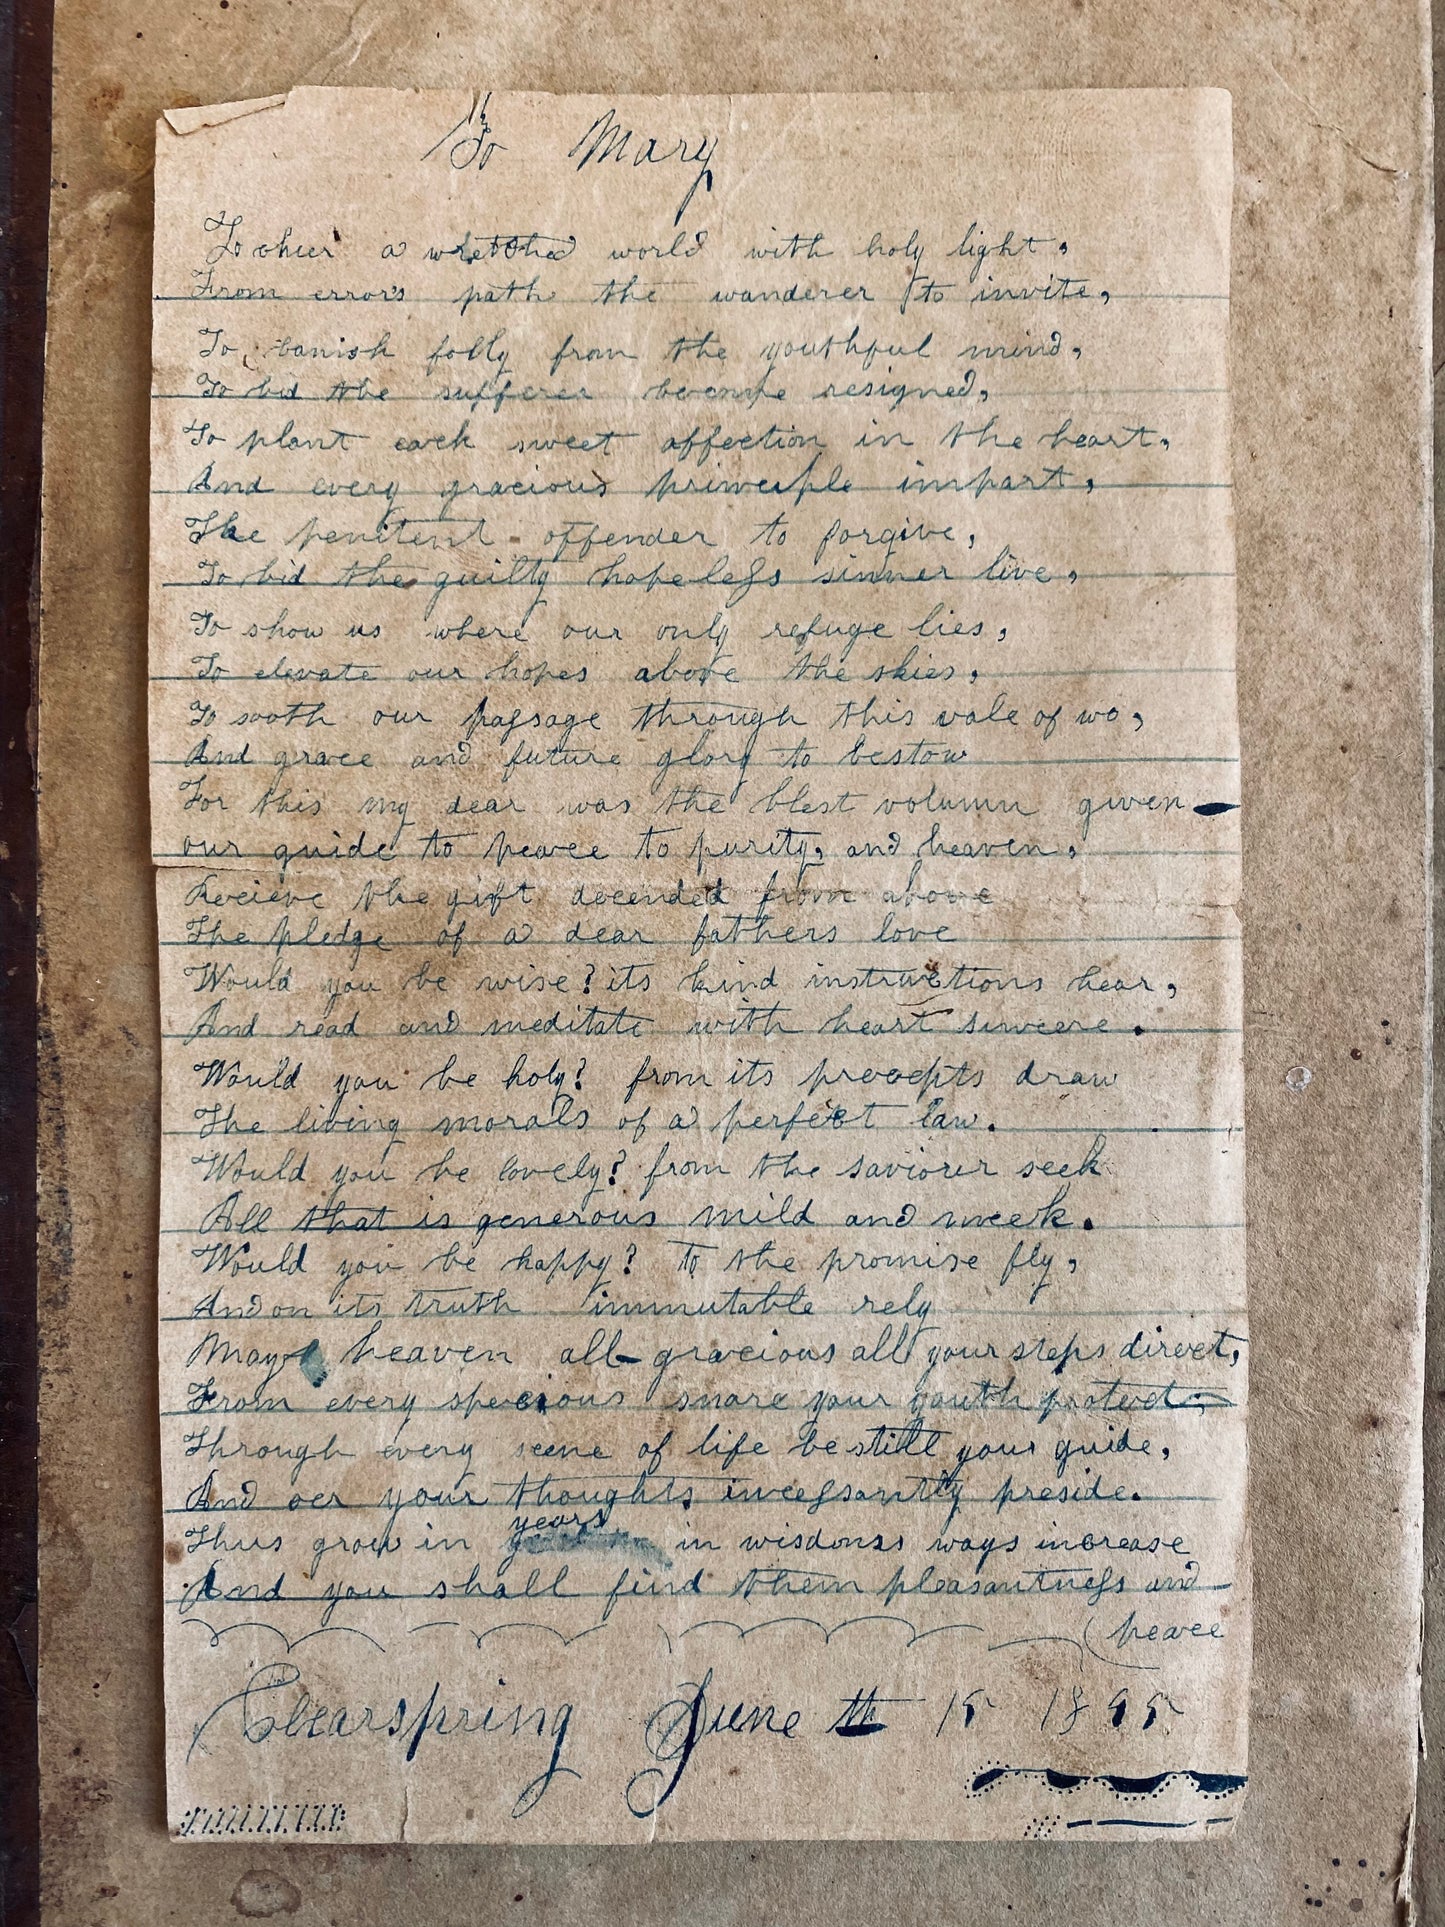 To Mary
To cheer a wretched world with holy light,
From errors path the wanderer to invite,
To banish folly from the youthful mind,
To bid the sufferer become resigned,
To plant each sweet affection in the heart,
And every gracious principle impart,
The penitent offender to forgive,
To bid the guilty hopeless sinner live,
To show us where our only refuge lies,
To elevate our hopes above the skies,
To sooth our passage through this vale of wo,
And grace and future glory to bestow
For this my dear was the blest volumn given
our guide to peace to purity, and heaven,
Recieve the gift decended from above
The pledge of a dear fathers love
Would you be wise? its kind instructions hear,
And read and meditate with heart sincere.
Would you be holy? from its precepts draw
The living morals of a perfect law.
Would you be lovely? from the saviour seek
All that is generous mild and meek.
Would you be happy? To the promise fly,
And on its truth immutable rely
May heaven all-gracious all your steps direct,
From every specious snare your youth protect,
Through every scene of life be still your guide,
And oer your thoughts incessantly preside.
Thus grow in years in wisdoms ways increase
And you shall find them pleasantness and
(peace
Clearspring June th 15